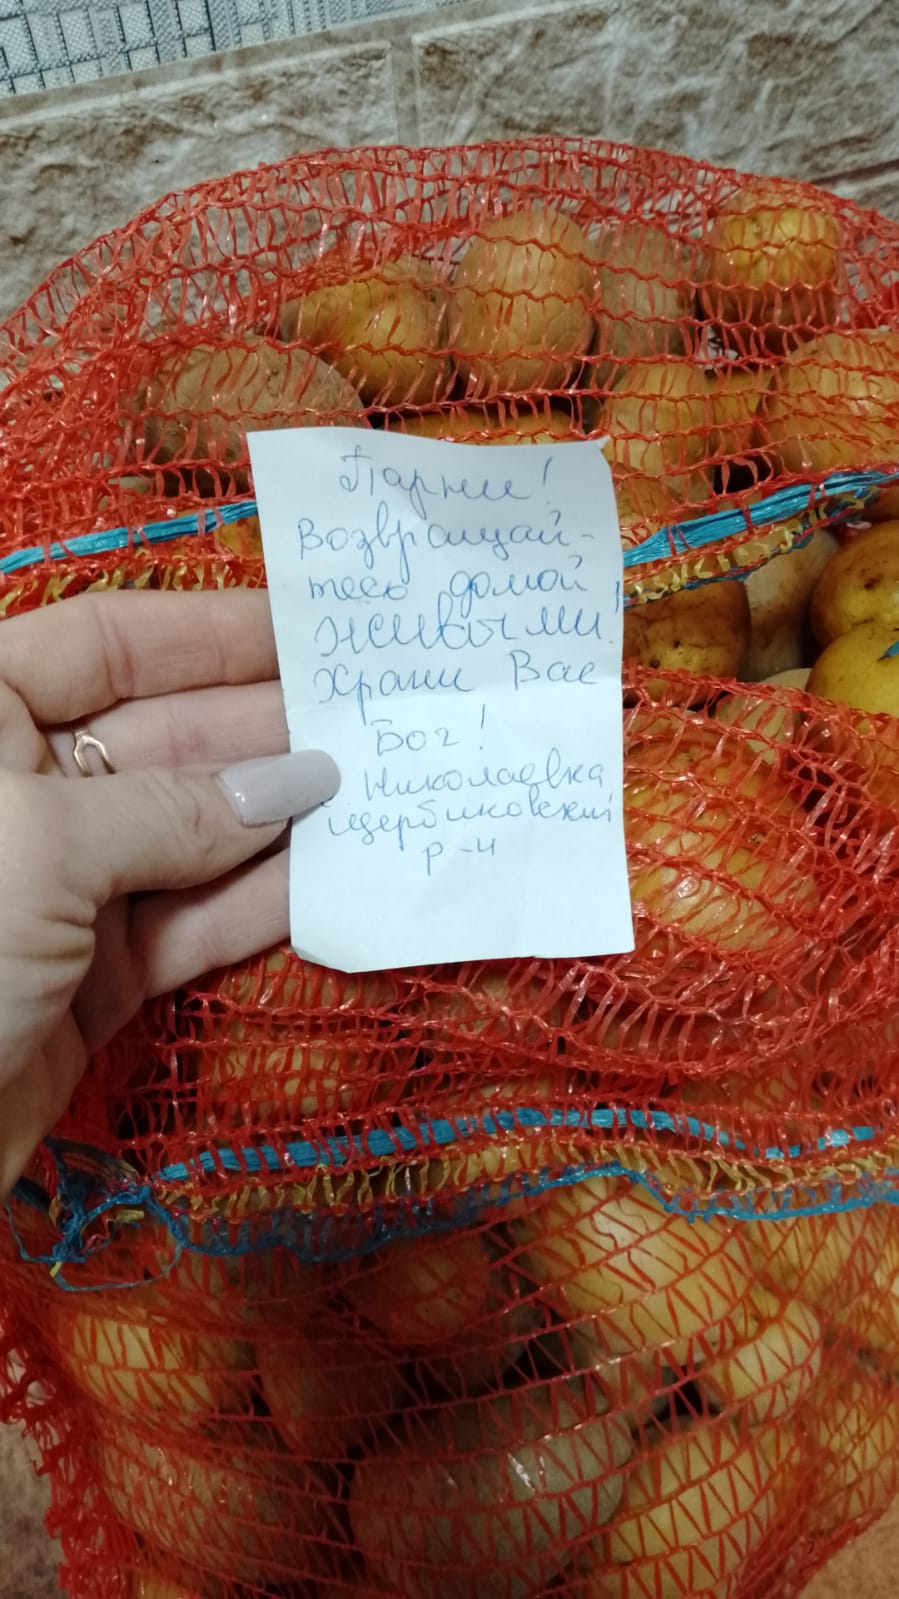 Парни!
Возвращай-
тесь домой
живыми!
Храни Вас
Бог!
с. Николаевка
Щербиновский
р-н